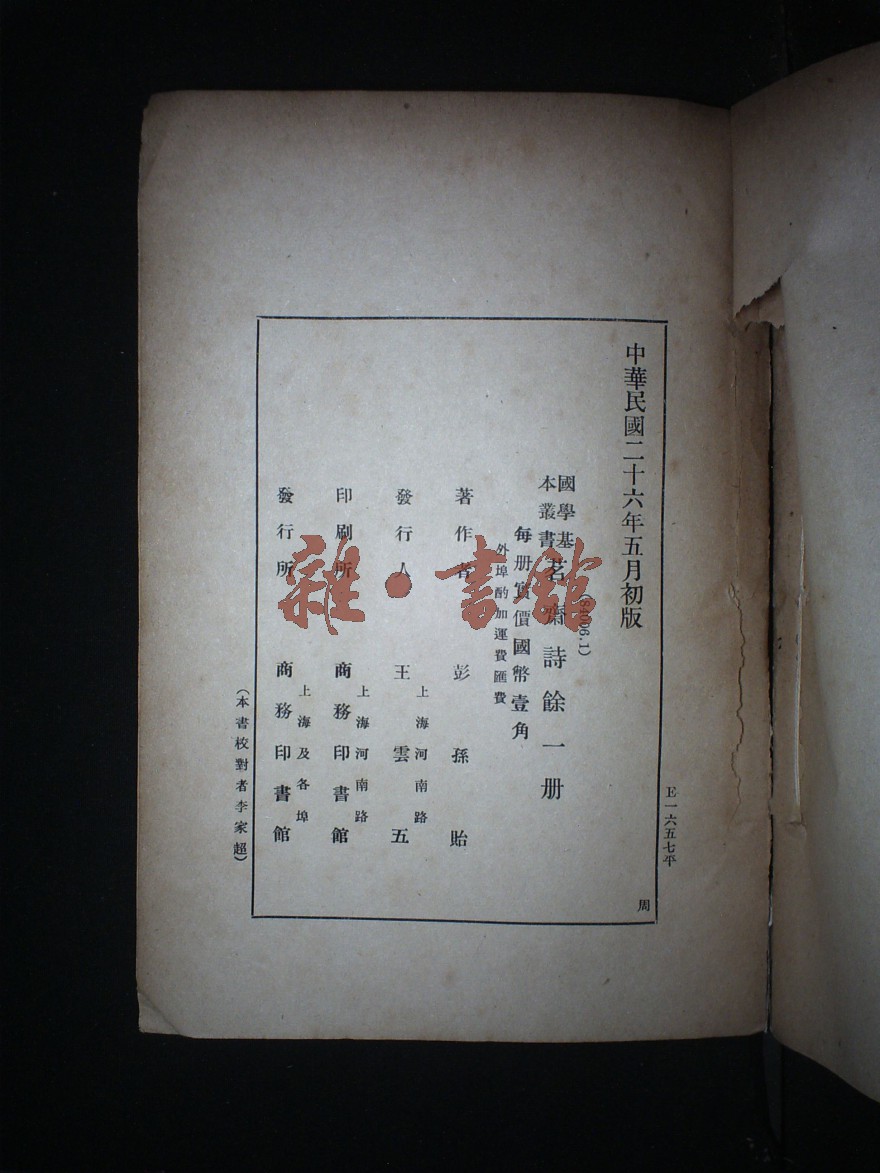 中華民國二十六年五月初版
(84006.1)
國學基
本叢書
茗齋詩餘一册
每册實價國幣壹角
外埠酌加運費匯費
著作者
彭孫貽
發行人
上海河南路
王雲五
印刷所
上海河南路
商務印書館
發行所
上海及各埠
商務印書館
(本書校對者李家超)
E一六五七平
周
雜·書館